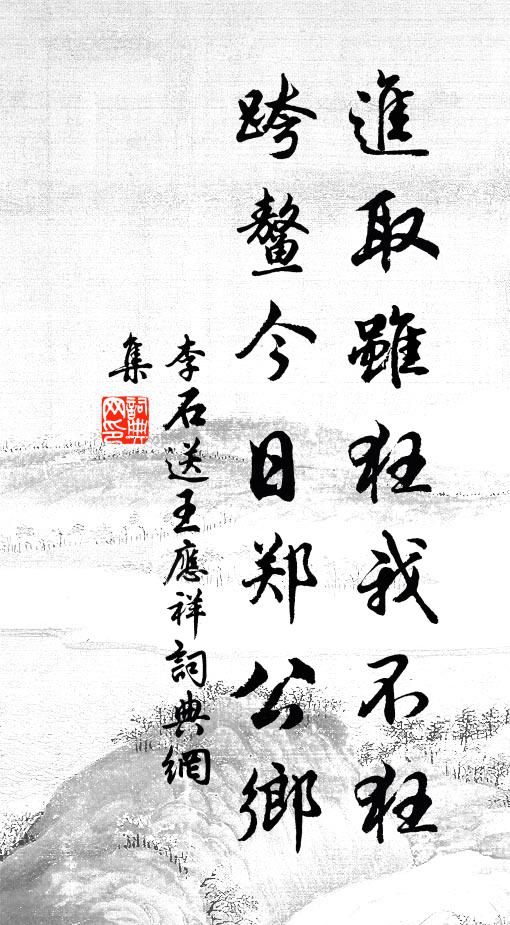 進取雖狂我不狂
跨鰲今日郑公鄉
李石送王應祥詞典網
集
詞典网印